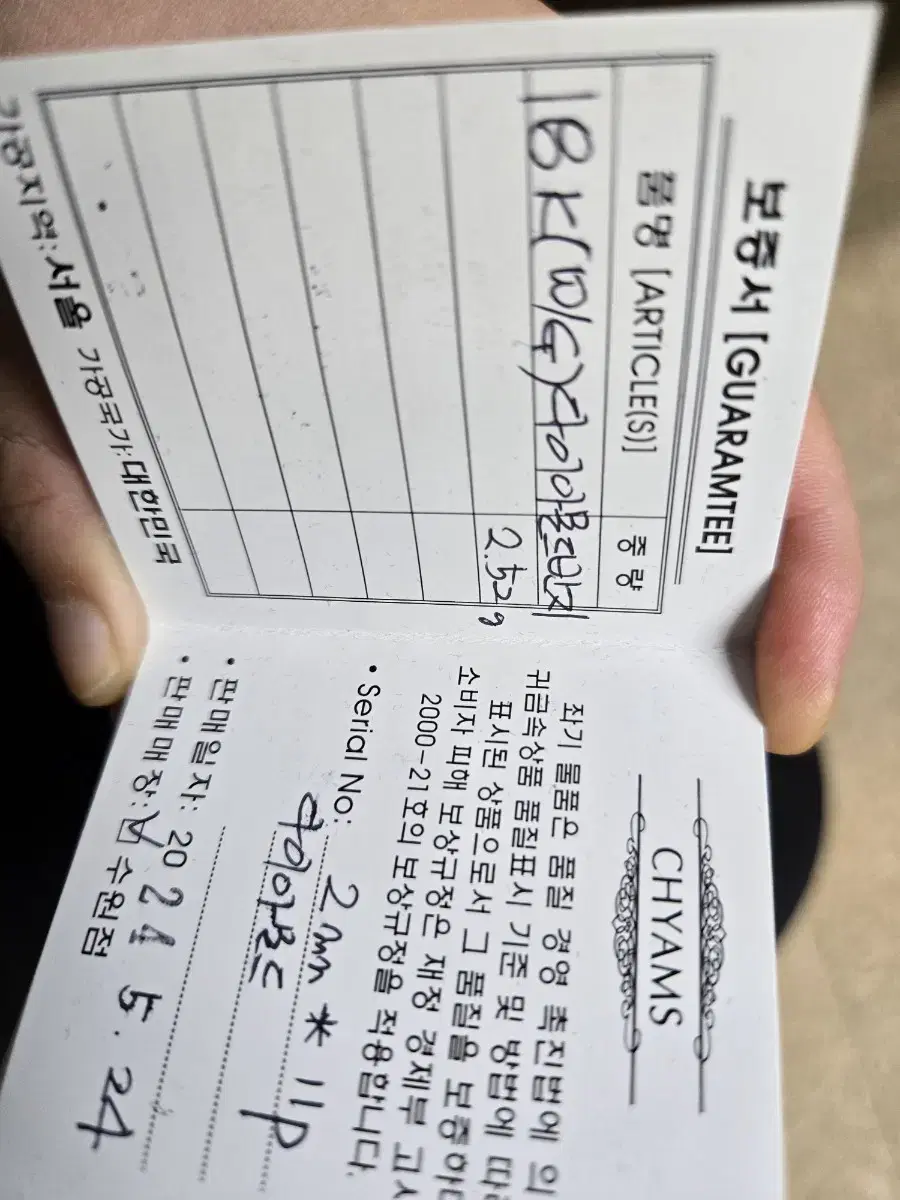 보증서 [GUARAMTEE]
품명 [ARTICLE(S)] 중량
18K(W/G)다이아몬드반지
2.52g
가공지역:서울 가공국가:대한민국
CHYAMS
좌기 물품은 품질 경영 촉진법에 의
귀금속상품 품질표시 기준 및 방법에 따라
표시된 상품으로서 그 품질을 보증하며
소비자 피해 보상규정은 재정 경제부 고시
2000-21호의 보상규정을 적용합니다.
• Serial No: 2mm * 11p
다이아몬드
• 판매일자: 2021 5. 24
• 판매매장: 수원점